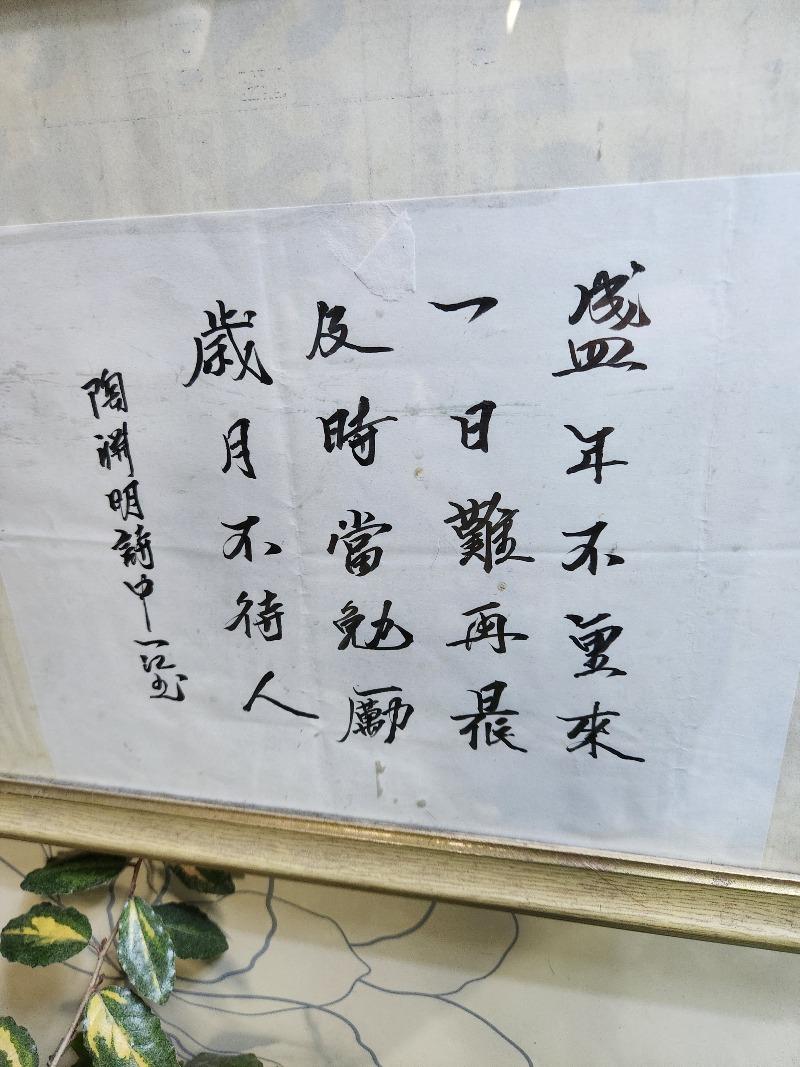 盛年不重來
一日難再晨
及時當勉勵
歲月不待人
陶淵明詩中一江書